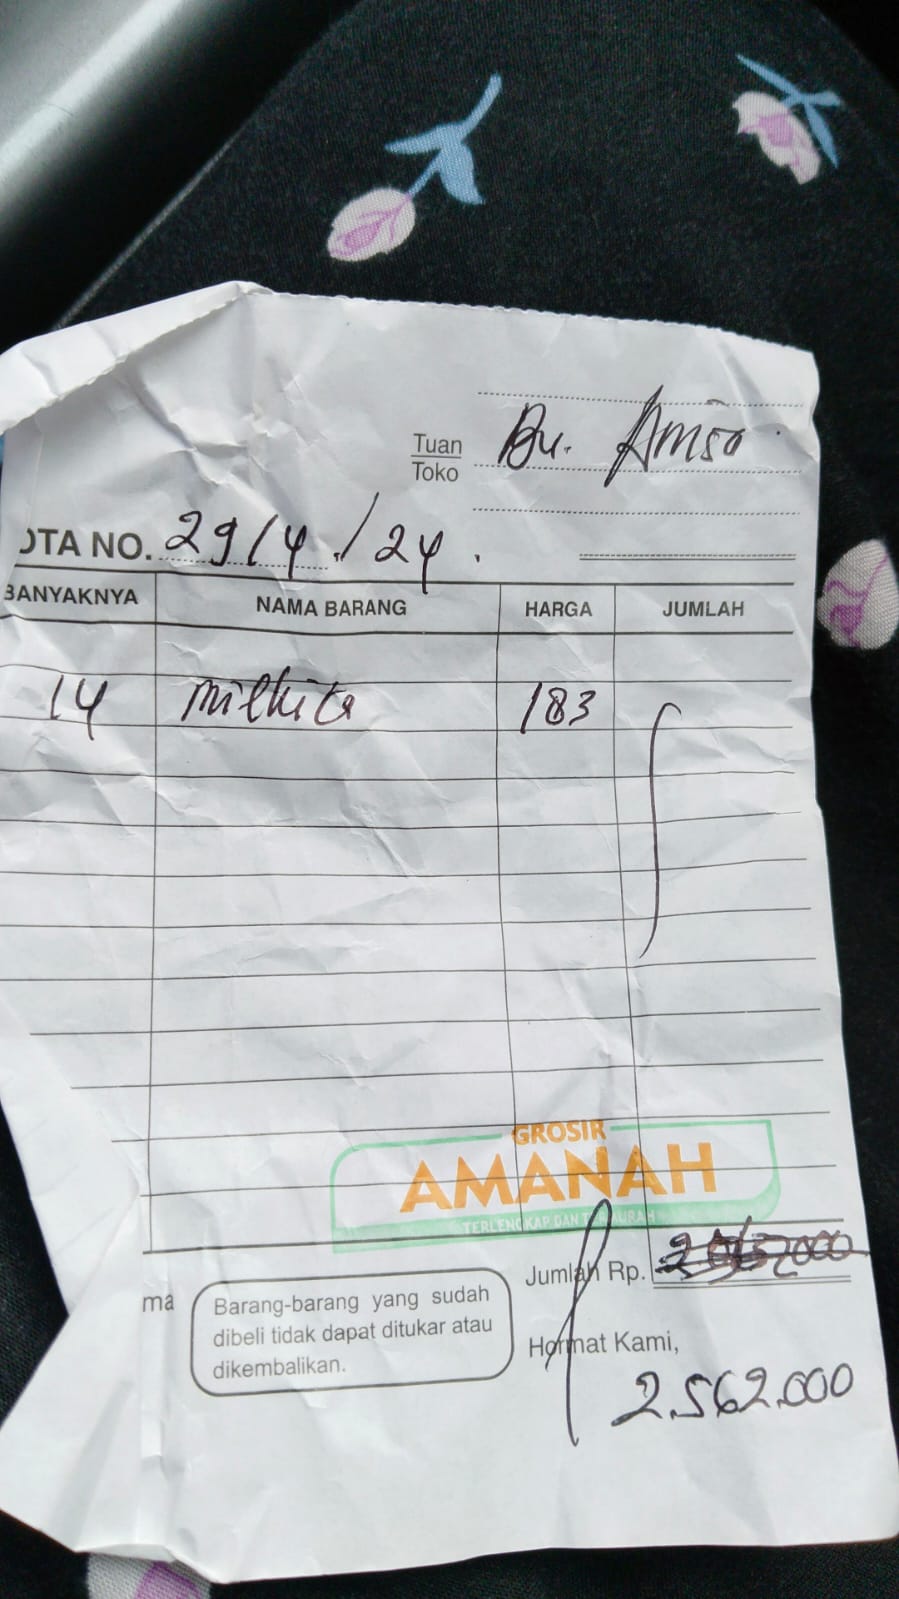 Tuan
Toko
Bu. Amiso
OTA NO. 29/4/24.
BANYAKNYA NAMA BARANG HARGA JUMLAH
14 milkita 183
GROSIR
AMANAH
TERLENGKAP DAN TERMURAH
Jumlah Rp.
ma
Barang-barang yang sudah
dibeli tidak dapat ditukar atau
dikembalikan.
Hormat Kami,
2.562.000